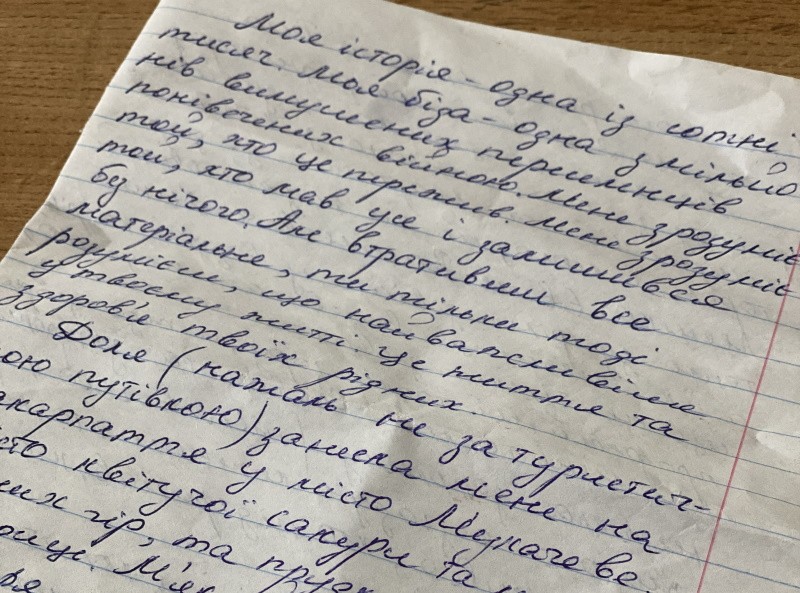 Моя історія - одна із сотні
тисяч. Моя біда - одна з мільйо
нів вимушених переселенців
понівечених війною. Мене зрозуміє
той, хто це пережив. Мене зрозуміє
той, хто мав усе і залишився
без нічого. Але втративши все
матеріальне, ти тільки тоді
розумієш, що найважливіше
у твоєму житті. Це життя та
здоров'я твоїх рідних.
Доля (нажаль не за туристич-
ною путівкою) занесла мене на
акарпаття у місто Мукачеве.
істо квітучої сакури та
них гір, та